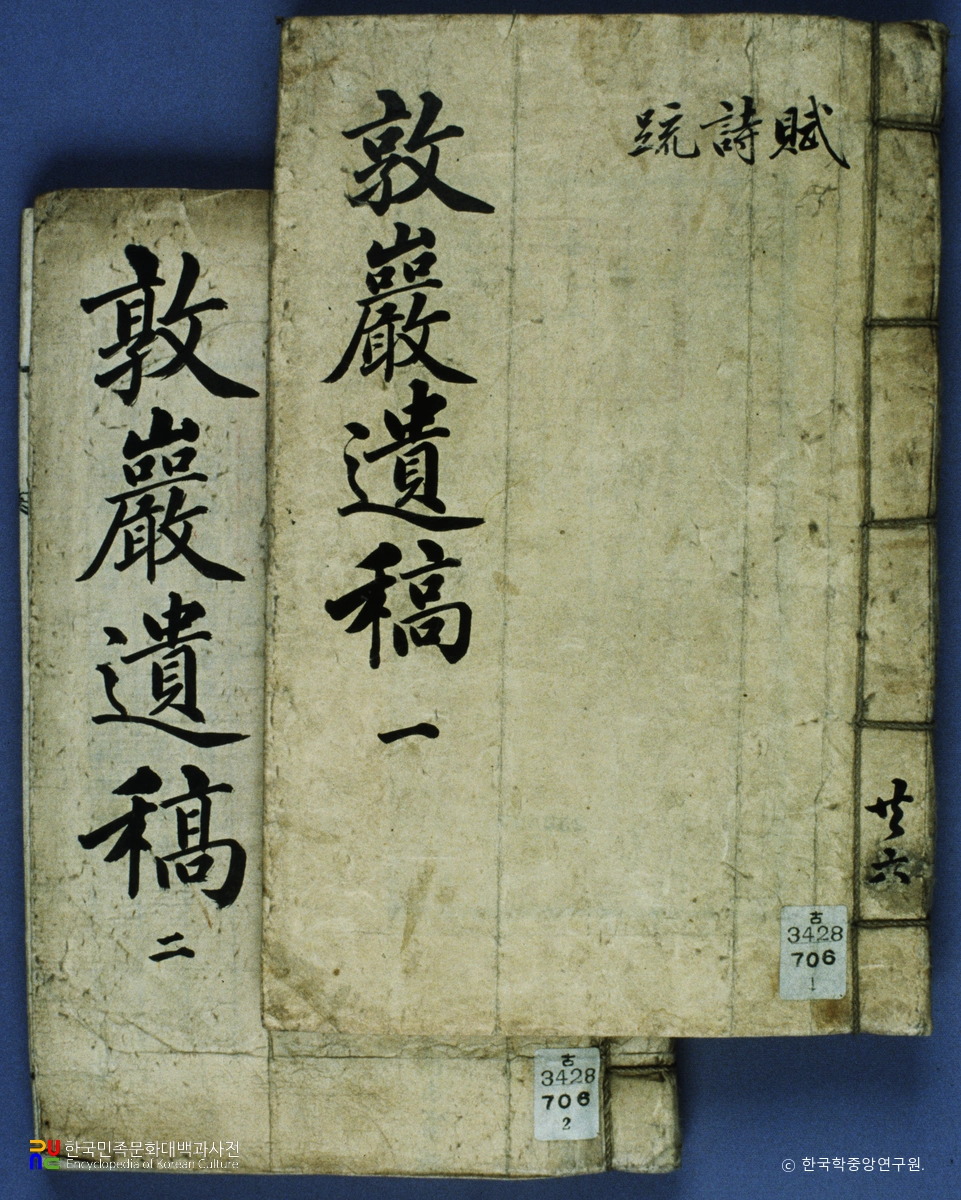 賦詩䟽
敦巖遺稿 一
廿六
古
3428
706
1
敦巖遺稿 二
古
3428
706
2
한국민족문화대백과사전
Encyclopedia of Korean Culture
ⓒ 한국학중앙연구원.